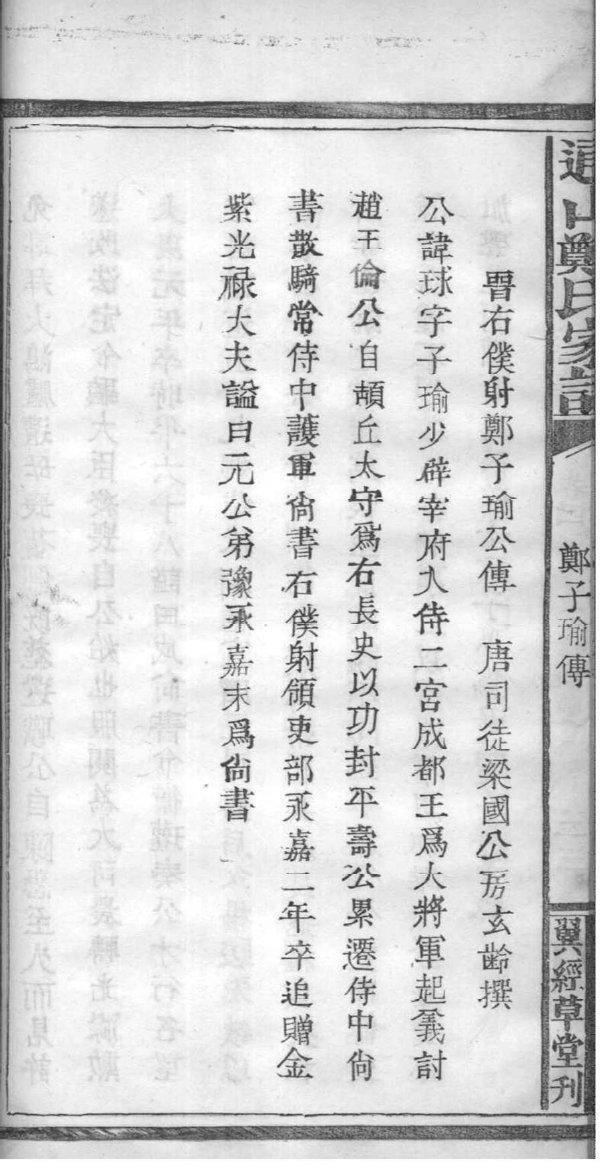 晉右僕射鄭子瑜公傳　唐司徒梁國公房玄齡撰
公諱球字子瑜少辟宰府入侍二宮成都王爲大將軍起義討
趙王倫公自頓丘太守爲右長史以功封平壽公累遷侍中尙
書散騎常侍中護軍尙書右僕射領吏部永嘉二年卒追贈金
紫光祿大夫謚曰元公弟豫永嘉末爲尙書
鄭氏家
鄭子瑜傳
翼經草堂刋